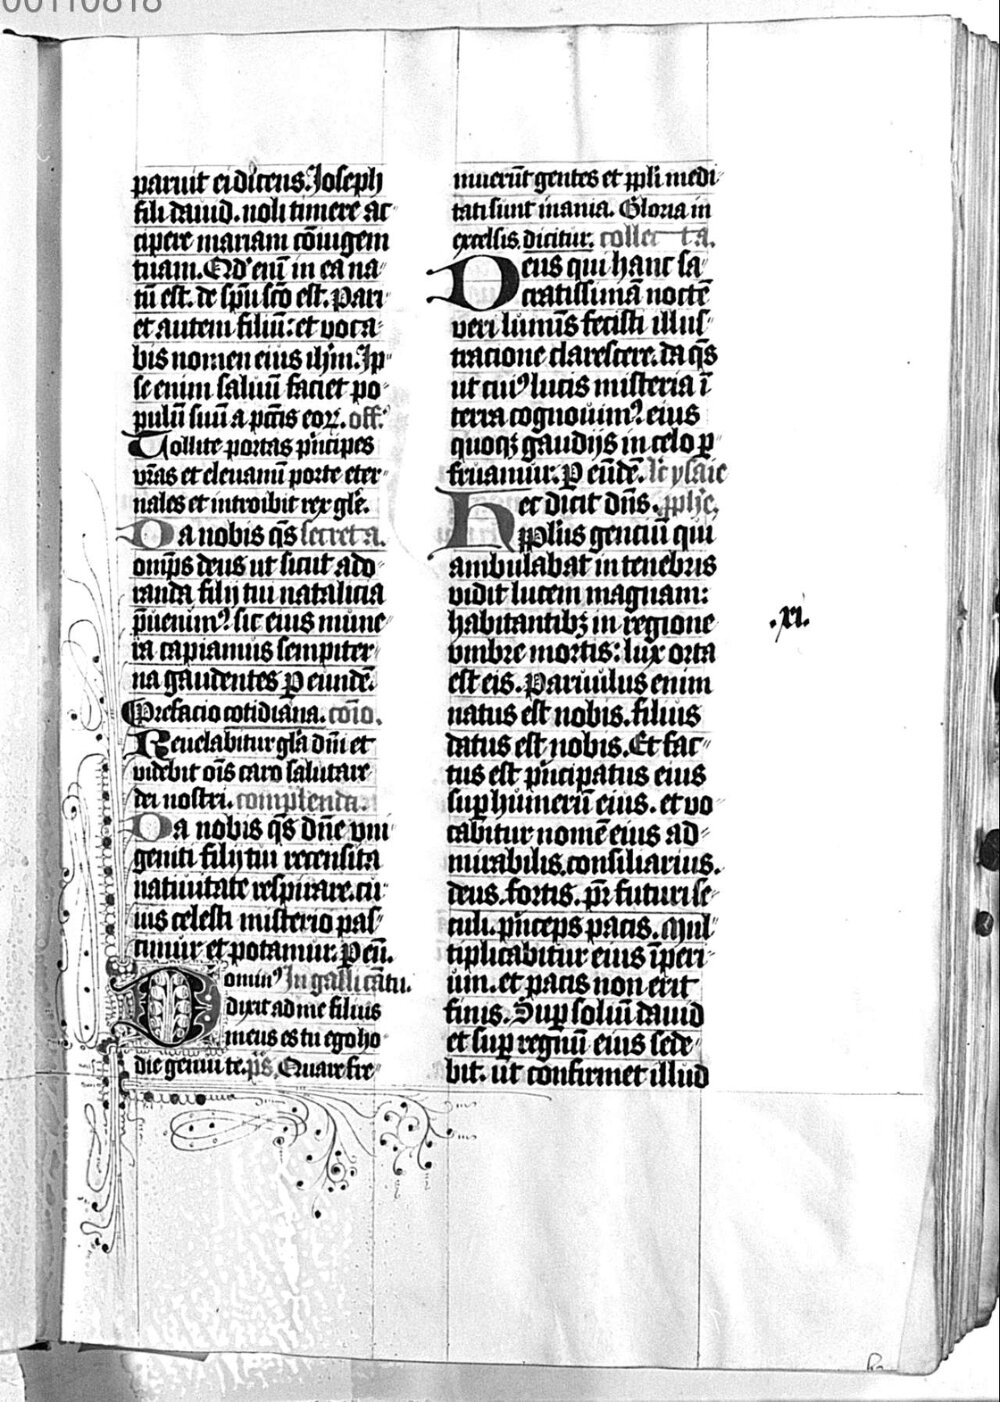 00110818
paruit ei dicens. Joseph
fili dauid. noli timere ac
cipere mariam coniugem
tuam. Qd' enī in ea na
tū est. de spū sco est. Pari
et autem filiū: et voca
bis nomen eius ihm. Ip
se enim saluū faciet po
pulū suū a pctis eoꝝ. off.
Tollite portas pncipes
vras et eleuamī porte eter
nales et introibit rex gle.
Da nobis qs secreta.
omps deus ut sicut ado
randa filij tui natalicia
puenimꝰ. sic eius mune
ra capiamus sempiter
na gaudentes P eundē.
Prefacio cotidiana. coīo.
Reuelabitur gla dni et
videbit ois caro salutare
dei nostri. complenda.
Da nobis qs dne vni
geniti filij tui recensita
natiuitate respirare. cu
ius celesti misterio pas
cimur et potamur. P eū.
Dominꝰ In gallicātu.
dixit ad me filius
meus es tu ego ho
die genui te. ps. Quare fre
muerūt gentes et ppli medi
tati sunt inania. Gloria in
excelsis dicitur. collecta.
Deus qui hanc sa
cratissimā noctē
veri luminis fecisti illus
tracione clarescere. da qs
ut cuiꝰ lucis misteria ī
terra cognouimꝰ. eius
quoqꝫ gaudijs in celo p
fruamur. P eūdē. lc ysaie
Hec dicit dns. pphe.
Pplus genciū qui
ambulabat in tenebris
vidit lucem magnam:
habitantibꝫ in regione
vmbre mortis: lux orta
est eis. Paruulus enim
natus est nobis. filius
datus est nobis. Et fac
tus est pncipatus eius
sup humerū eius. et vo
cabitur nomē eius ad
mirabilis. consiliarius.
deus. fortis. pr futuri se
culi. pnceps pacis. Mul
tiplicabitur eius īperi
um. et pacis non erit
finis. Sup soliū dauid
et sup regnū eius sede
bit. ut confirmet illud
.xi.